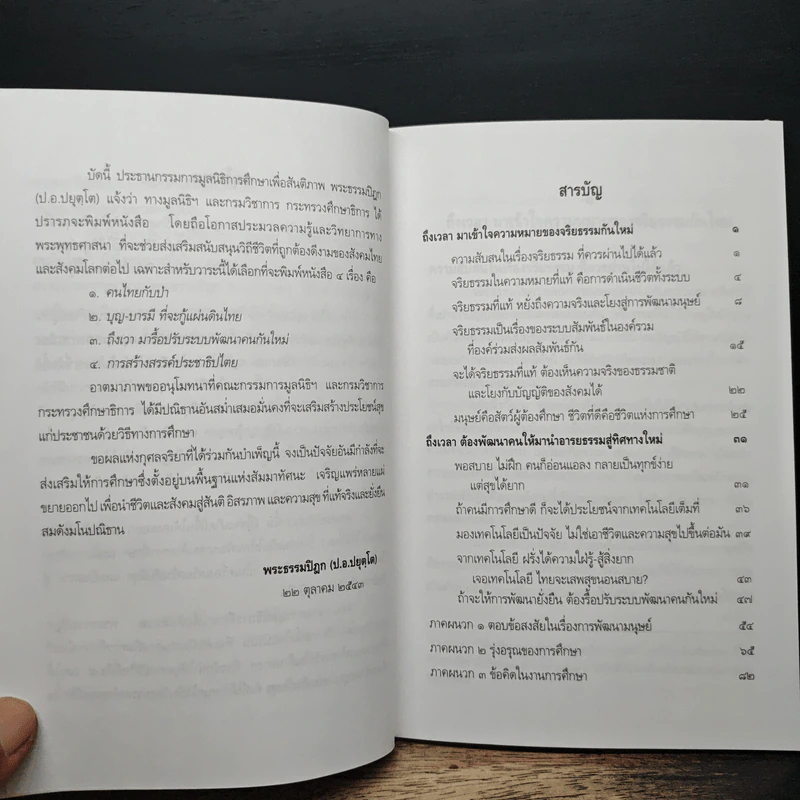 บัดนี้ ประธานกรรมการมูลนิธิการศึกษาเพื่อสันติภาพ พระธรรมปิฎก
(ป.อ.ปยุตฺโต) แจ้งว่า ทางมูลนิธิฯ และกรมวิชาการ กระทรวงศึกษาธิการ ได้
ปรารภจะพิมพ์หนังสือ โดยถือโอกาสประมวลความรู้และวิทยาการทาง
พระพุทธศาสนา ที่จะช่วยส่งเสริมสนับสนุนวิถีชีวิตที่ถูกต้องดีงามของสังคมไทย
และสังคมโลกต่อไป เฉพาะสำหรับวาระนี้ได้เลือกที่จะพิมพ์หนังสือ ๔ เรื่อง คือ
๑. คนไทยกับป่า
๒. บุญ-บารมี ที่จะกู้แผ่นดินไทย
๓. ถึงเวา มารื้อปรับระบบพัฒนาคนกันใหม่
๔. การสร้างสรรค์ประชาธิปไตย
อาตมาภาพขออนุโมทนาที่คณะกรรมการมูลนิธิฯ และกรมวิชาการ
กระทรวงศึกษาธิการ ได้มีปณิธานอันสม่ำเสมอมั่นคงที่จะเสริมสร้างประโยชน์สุข
แก่ประชาชนด้วยวิธีทางการศึกษา
ขอผลแห่งกุศลจริยาที่ได้ร่วมกันบำเพ็ญนี้ จงเป็นปัจจัยอันมีกำลังที่จะ
ส่งเสริมให้การศึกษาซึ่งตั้งอยู่บนพื้นฐานแห่งสัมมาทัศนะ เจริญแพร่หลายแผ่
ขยายออกไป เพื่อนำชีวิตและสังคมสู่สันติ อิสรภาพ และความสุข ที่แท้จริงและยั่งยืน
สมดังมโนปณิธาน
พระธรรมปิฎก (ป.อ.ปยุตฺโต)
๒๒ ตุลาคม ๒๕๔๓
สารบัญ
ถึงเวลา มาเข้าใจความหมายของจริยธรรมกันใหม่ ๑
ความสับสนในเรื่องจริยธรรม ที่ควรผ่านไปได้แล้ว ๑
จริยธรรมในความหมายที่แท้ คือการดำเนินชีวิตทั้งระบบ ๔
จริยธรรมที่แท้ หยั่งถึงความจริงและโยงสู่การพัฒนามนุษย์ ๘
จริยธรรมเป็นเรื่องของระบบสัมพันธ์ในองค์รวม
ที่องค์ร่วมส่งผลสัมพันธ์กัน ๑๕
จะได้จริยธรรมที่แท้ ต้องเห็นความจริงของธรรมชาติ
และโยงกับบัญญัติของสังคมได้ ๒๒
มนุษย์คือสัตว์ผู้ต้องศึกษา ชีวิตที่ดีคือชีวิตแห่งการศึกษา ๒๕
ถึงเวลา ต้องพัฒนาคนให้มานำอารยธรรมสู่ทิศทางใหม่ ๓๑
พอสบาย ไม่ฝึก คนก็อ่อนแอลง กลายเป็นทุกข์ง่าย
แต่สุขได้ยาก ๓๑
ถ้าคนมีการศึกษาดี ก็จะได้ประโยชน์จากเทคโนโลยีเต็มที่ ๓๖
มองเทคโนโลยีเป็นปัจจัย ไม่ใช่เอาชีวิตและความสุขไปขึ้นต่อมัน ๓๙
จากเทคโนโลยี ฝรั่งได้ความใฝ่รู้-สู้สิ่งยาก
เจอเทคโนโลยี ไทยจะเสพสุขนอนสบาย? ๔๓
ถ้าจะให้การพัฒนายั่งยืน ต้องรื้อปรับระบบพัฒนาคนกันใหม่ ๔๗
ภาคผนวก ๑ ตอบข้อสงสัยในเรื่องการพัฒนามนุษย์ ๕๔
ภาคผนวก ๒ รุ่งอรุณของการศึกษา ๖๕
ภาคผนวก ๓ ข้อคิดในงานการศึกษา ๘๒